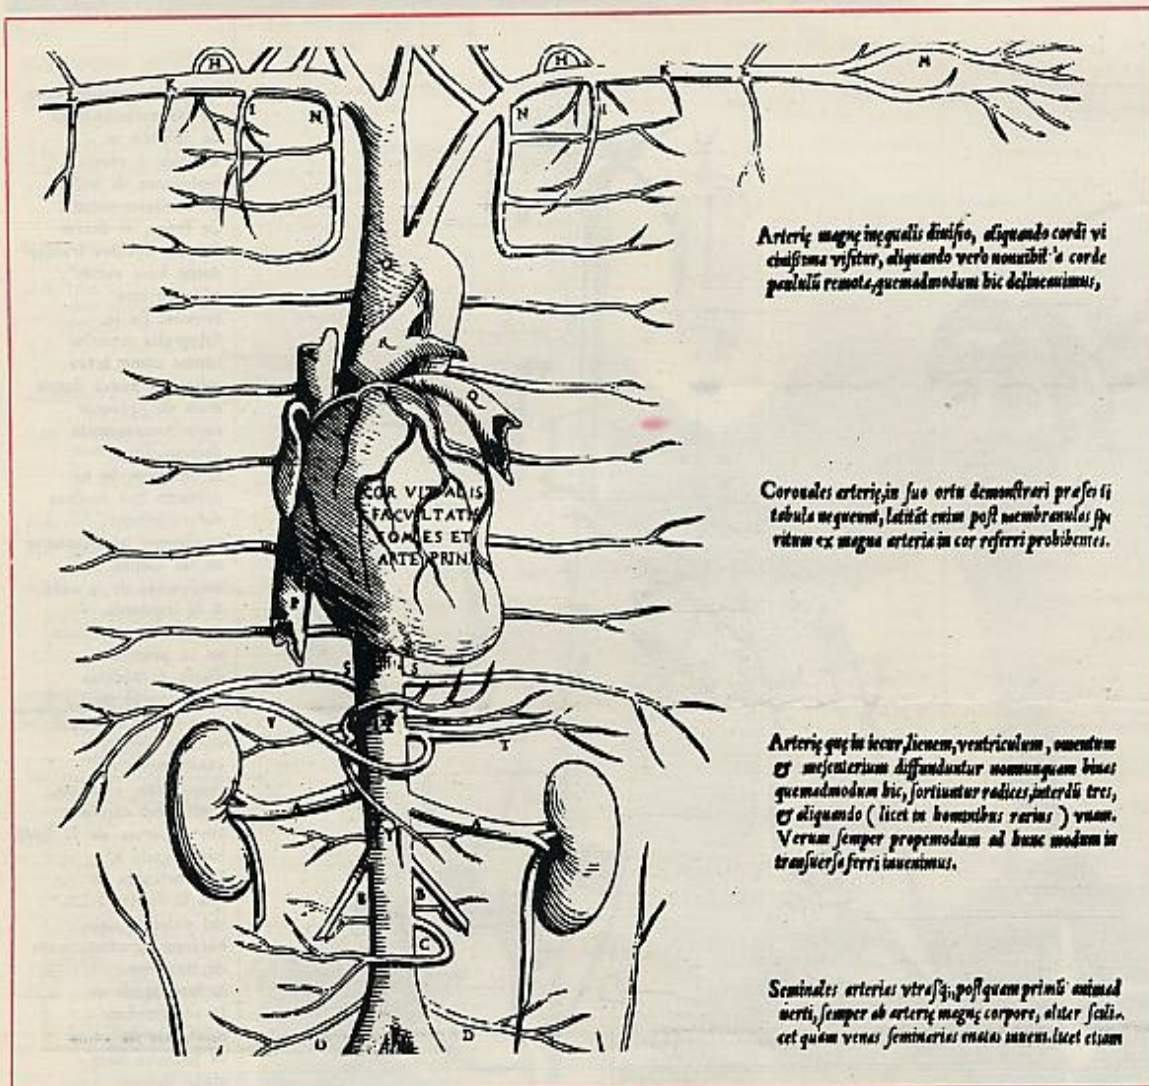 COR VITALIS
FACVLTATIS
FOMES ET
ARTE PRIN
Arterię magnę inęqualis diuisio, aliquando cordi vi
cinissima visitur, aliquando vero nonnihil a corde
paululū remota, quemadmodum hic delineauimus,
Coronales arterię, in suo ortu demonstrari præsenti
tabula nequeunt, latitāt enim post membranulas spi
ritum ex magna arteria in cor referri prohibentes.
Arterię quę in iecur, lienem, ventriculum, omentum
& mesenterium diffunduntur nonnunquam binas
quemadmodum hic, sortiuntur radices, interdū tres,
& aliquando ( licet in hominibus rarius ) vnam.
Verum semper propemodum ad hunc modum in
transuersa ferri inuenimus.
Seminales arterias vtrasq;, postquam primū animad
uerti, semper ab arterię magnę corpore, aliter scili-
cet quàm venas seminarias enatas inueni. licet etiam